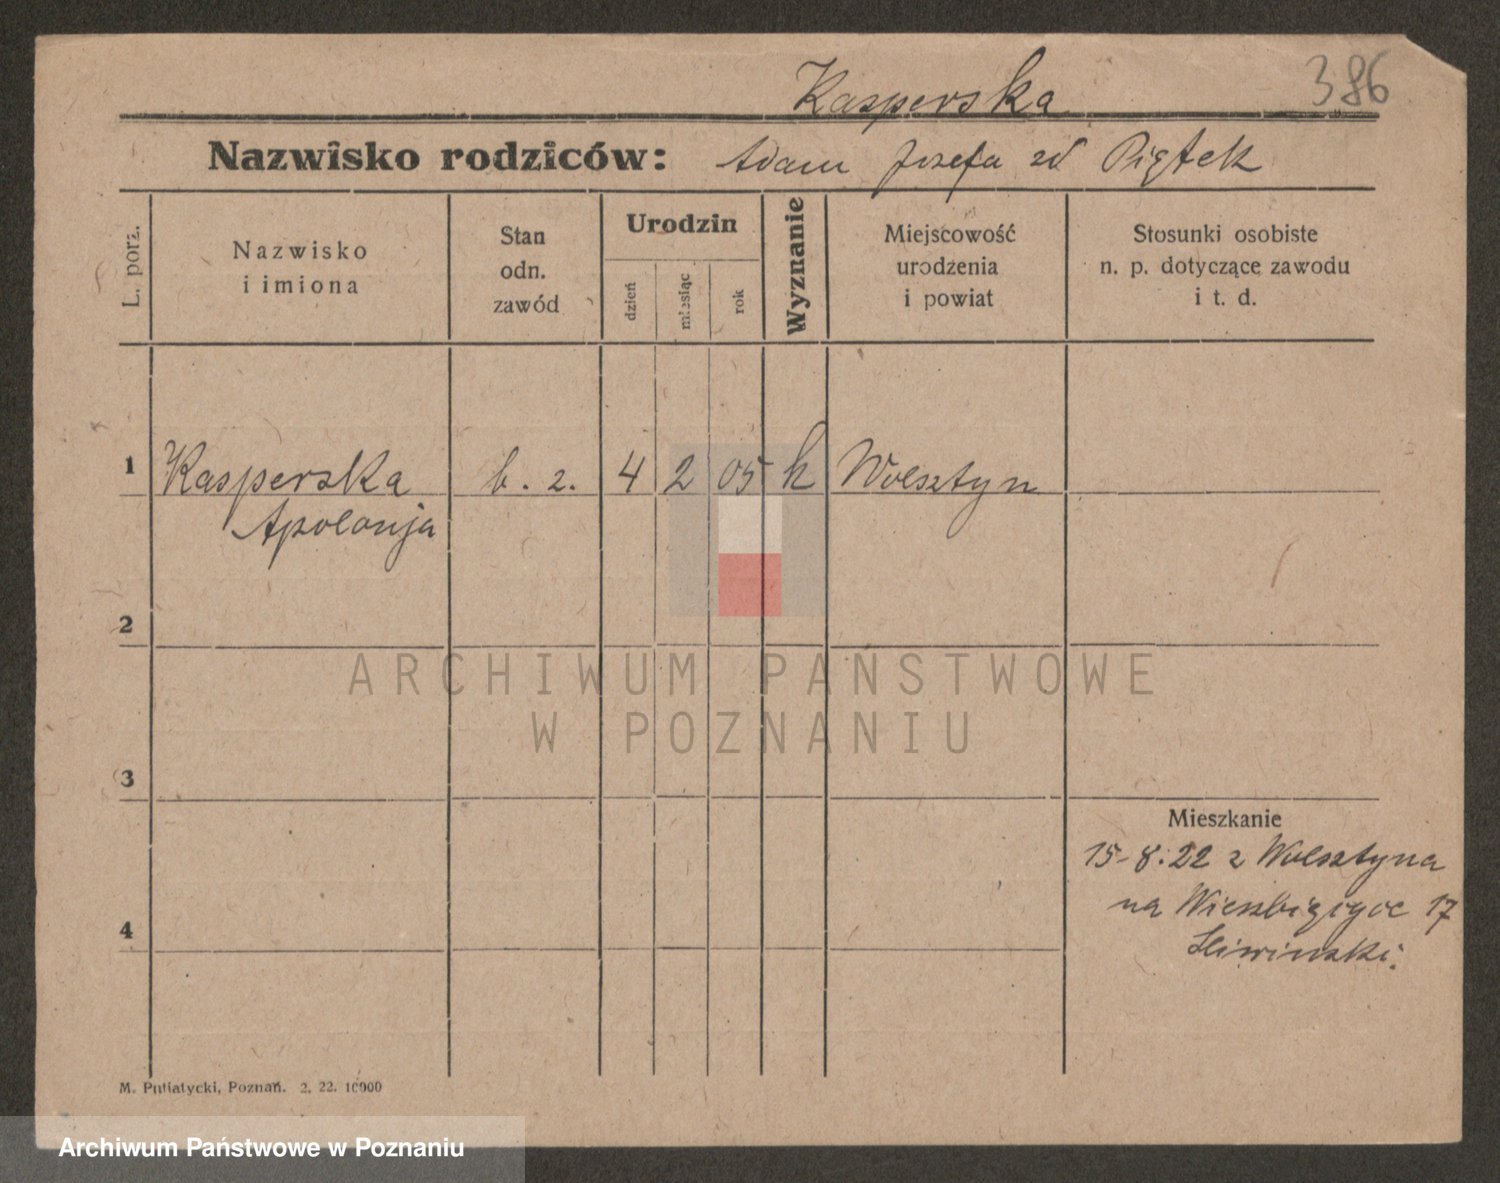 Kasperska 386
Nazwisko rodziców: Adam Jozefa zd Piątek
L. porz.
Nazwisko
i imiona
Stan
odn.
zawód
Urodzin
dzień
miesiąc
rok
Wyznanie
Miejscowość
urodzenia
i powiat
Stosunki osobiste
n. p. dotyczące zawodu
i t. d.
1 Kasperska b. z. 4 2 05 k Wolsztyn
Apolonja
2
ARCHIWUM PAŃSTWOWE
W POZNANIU
3
Mieszkanie
15-8.22 z Wolsztyna
na Wierzbięcice 17
Sliwinski.
4
M. Putiatycki, Poznań. 2. 22. 10000
Archiwum Państwowe w Poznaniu